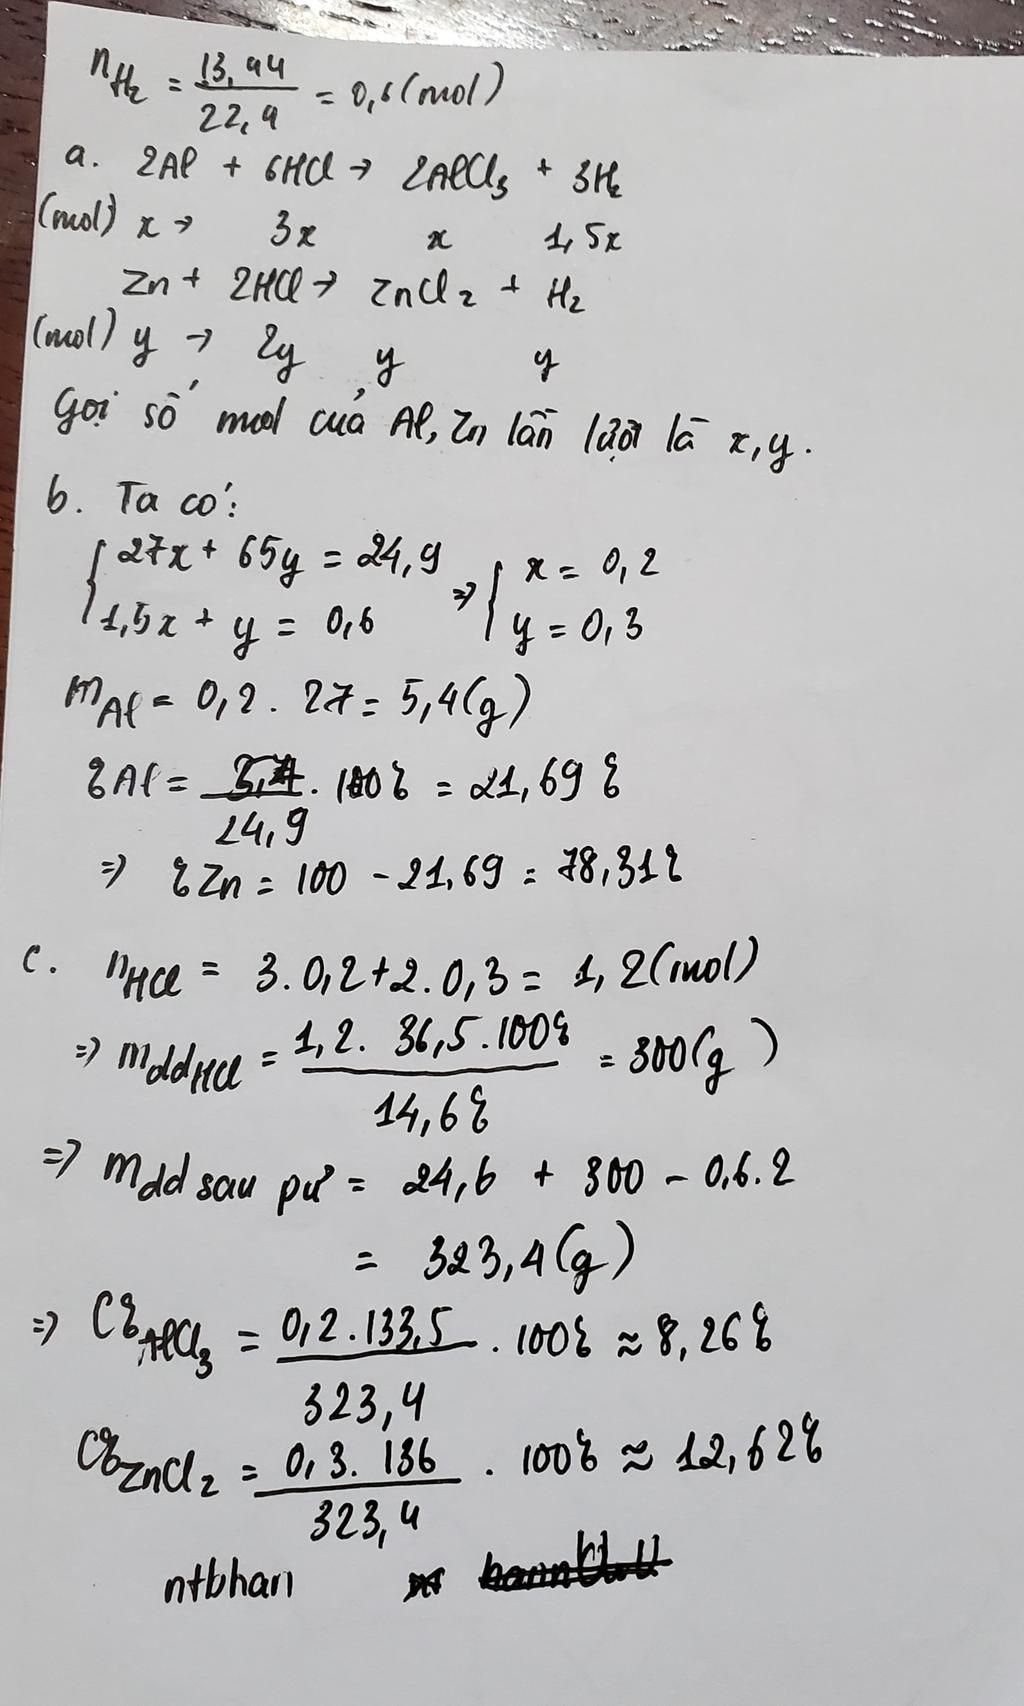 nH₂ = 13,44 / 22,4 = 0,6 (mol)
a. 2Al + 6HCl → 2AlCl₃ + 3H₂
(mol) x → 3x x 1,5x
Zn + 2HCl → ZnCl₂ + H₂
(mol) y → 2y y y
Gọi số mol của Al, Zn lần lượt là x, y.
b. Ta có:
{ 27x + 65y = 24,9 => { x = 0,2
1,5x + y = 0,6 y = 0,3
mAl = 0,2 . 27 = 5,4 (g)
%Al = 5,4 / 24,9 . 100% = 21,69%
=> %Zn = 100 - 21,69 = 78,31%
c. nHCl = 3.0,2 + 2.0,3 = 1,2 (mol)
=> mddHCl = 1,2 . 36,5 . 100% / 14,6% = 300 (g)
=> mdd sau pư = 24,6 + 300 - 0,6.2
= 323,4 (g)
=> C%AlCl₃ = 0,2 . 133,5 / 323,4 . 100% ≈ 8,26%
C%ZnCl₂ = 0,3 . 136 / 323,4 . 100% ≈ 12,62%
ntbhan